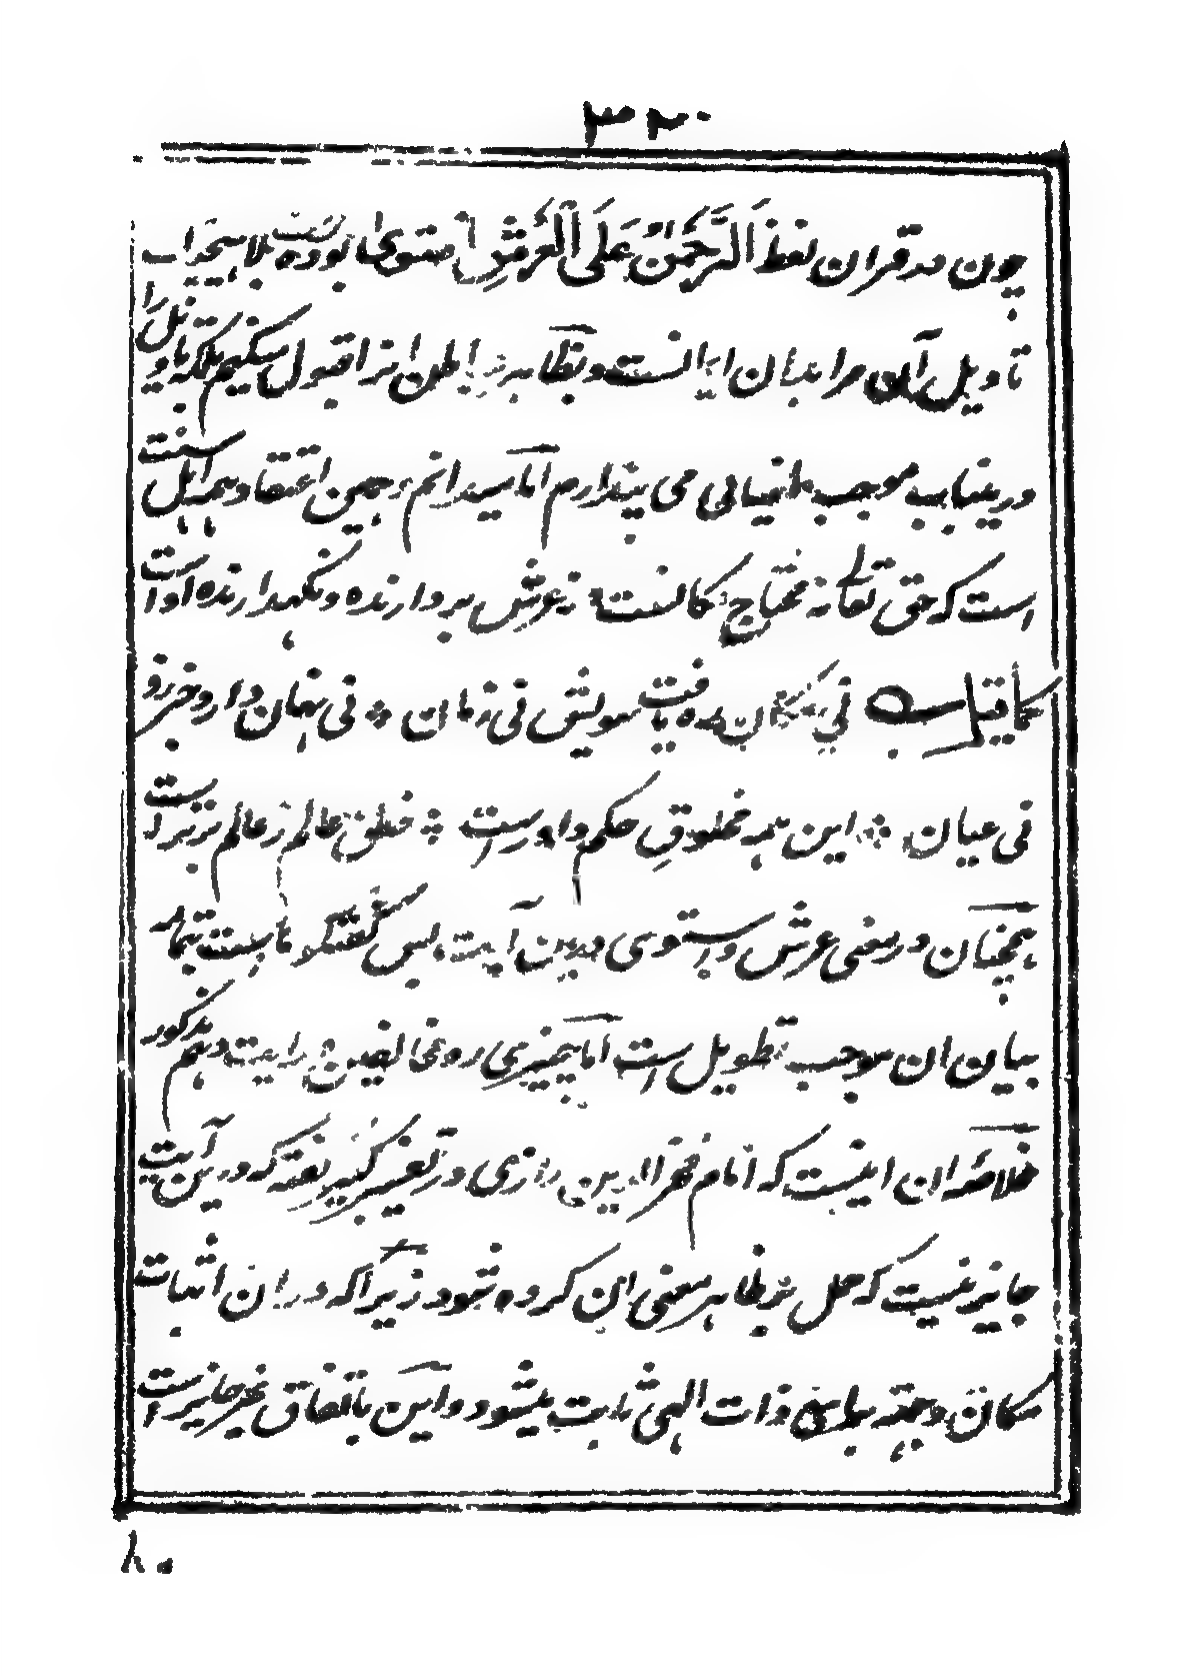 ۳۲۰
چون در قران لفظ اَلرَّحْمٰنُ عَلَی الْعَرْشِ استوی بوده است بلا هیچ
تاویل آن مراد ان است و بظاهر قبول میکنیم بلکه تاویل را
درینباب موجب می پندارم اما میدانم همین اعتقاد همه اهل سنت
است که حق تعالی نه محتاج مکانست نه عرش بردارنده و نگهدارنده او است
کما قیل بیت نی مکان ره یافت سویش نی زمان ۞ نی نهان دارد خبر زو
نی عیان ۞ این همه مخلوق حکم داورست ۞ خلق عالم ز عالم برتر است
همچنان در معنی عرش و استوی درین آیت بس گفتگوهاست بتمامه
بیان ان موجب تطویل است اما چیزی رعایت دهم مذکور
خلاصه ان اینست که امام فخر الدین رازی در تفسیر کبیر گفته که درین آیت
جایز نیست که حمل بر ظاهر معنی ان کرده شود زیرا که دران اثبات
مکان و جهة برای ذات الهی ثابت میشود و این باتفاق غیر جایز است
۸۰